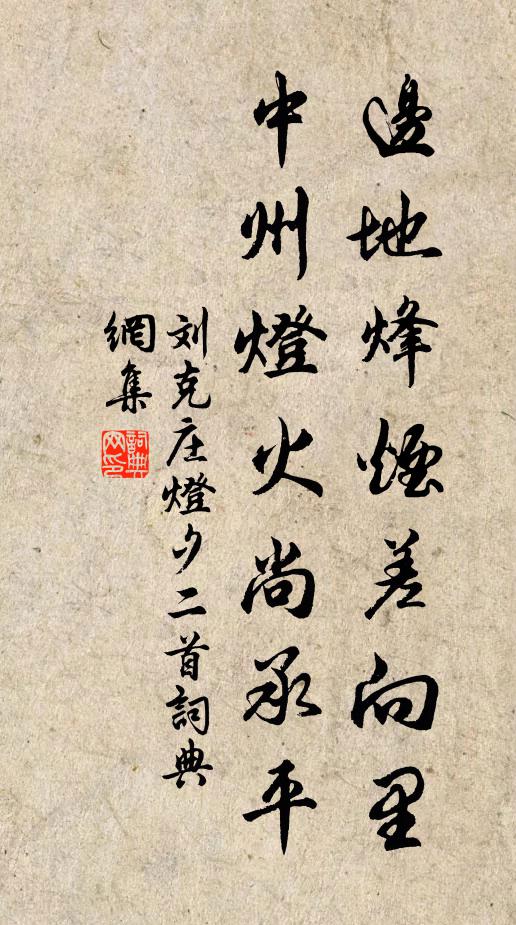 邊地烽煙差向里
中州燈火尚承平
刘克庄燈夕二首詞典
網集
詞典網印